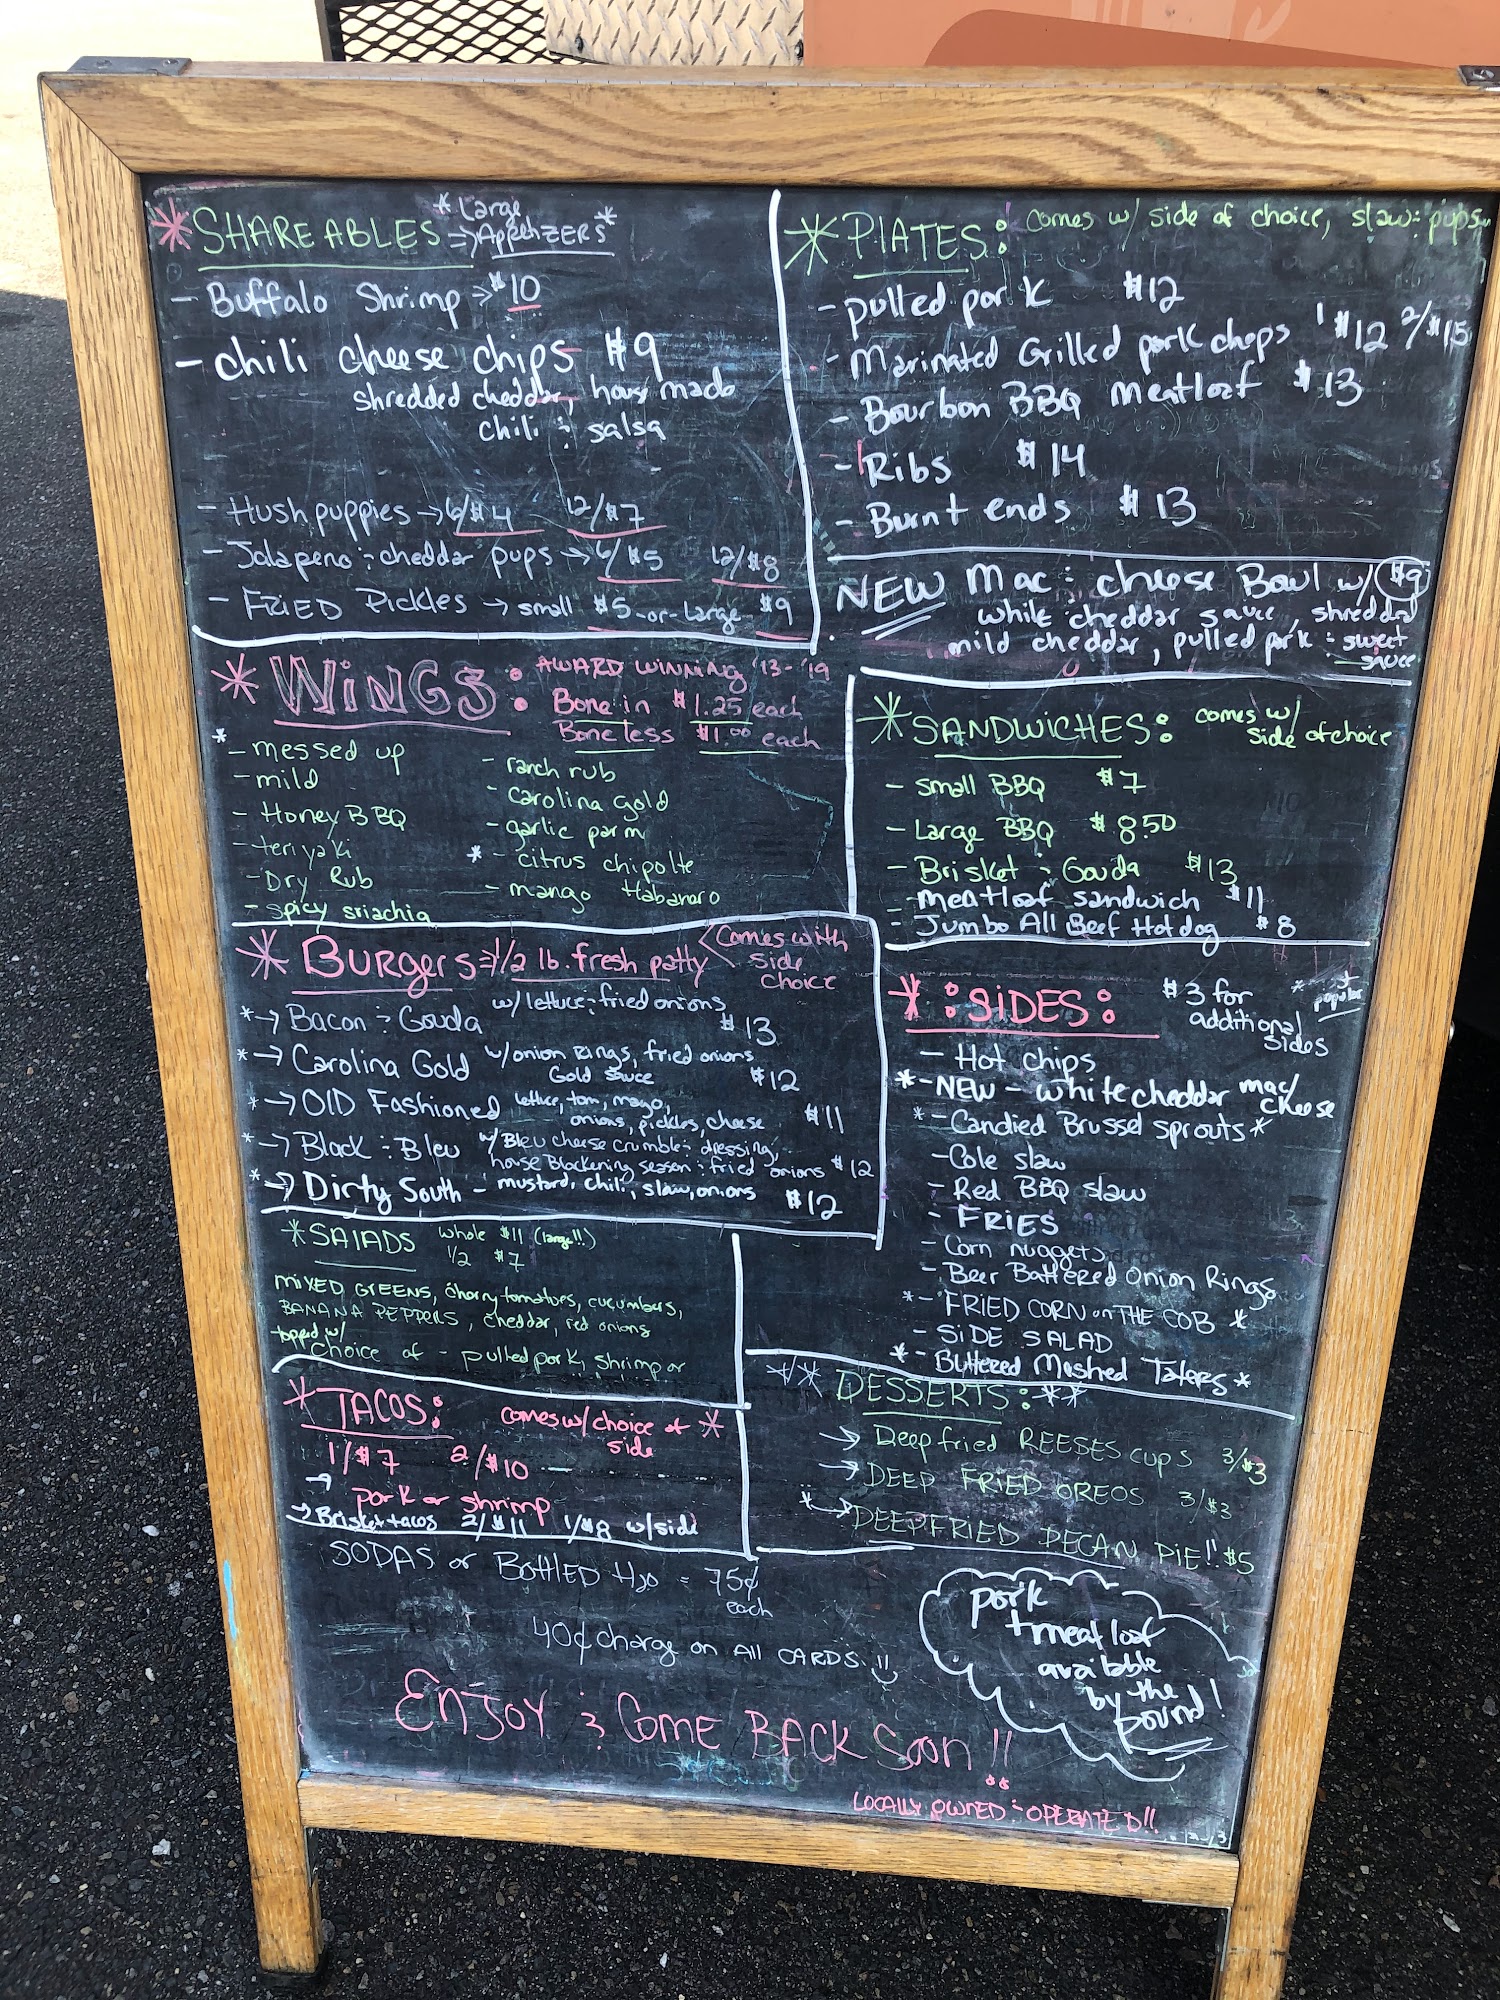 * SHAREABLES => * Large APPETIZERS *
- Buffalo Shrimp → $10
- chili cheese chips $9
shredded cheddar, house made
chili & salsa
- Hush puppies → 6/$4 12/$7
- Jalapeno & cheddar pups → 6/$5 12/$8
- FRIED Pickles → small $5 -or- Large $9
* PLATES: comes w/ side of choice, slaw & pups
- pulled pork $12
- Marinated Grilled pork chops 1 $12 2/$15
- Bourbon BBQ Meatloaf $13
- Ribs $14
- Burnt ends $13
NEW Mac & cheese Bowl w/ $9
white cheddar sauce, shredded
mild cheddar, pulled pork & sweet
sauce
* WINGS: AWARD WINNING '13-'19
Bone in $1.25 each
Boneless $1.00 each
* - messed up
- mild
- Honey BBQ
- teriyaki
- Dry Rub
- spicy sriachia
- ranch rub
- carolina gold
- garlic parm
* - citrus chipolte
- mango Habanero
* SANDWICHES: comes w/
side of choice
- small BBQ $7
- Large BBQ $8.50
- Brisket & Gouda $13
- meatloaf sandwich $11
- Jumbo All Beef Hot dog $8
* Burgers => 1/2 lb. fresh patty < Comes with
side
choice
* → Bacon & Gouda w/ lettuce & fried onions $13
* → Carolina Gold w/ onion Rings, fried onions
Gold sauce $12
* → Old Fashioned lettuce, tom, mayo,
onions, pickles, cheese $11
* → Black & Bleu w/ Bleu cheese crumble & dressing,
house Blackening season & fried onions $12
* → Dirty South - mustard, chili, slaw, onions $12
* :SIDES: $3 for
additional
sides
* = popular
- Hot chips
* - NEW - white cheddar mac/
cheese
* - Candied Brussel sprouts *
- Cole slaw
- Red BBQ slaw
- FRIES
- Corn nuggets
- Beer Battered Onion Rings
* - FRIED CORN on THE COB *
- SIDE SALAD
* - Buttered Mashed Taters *
* SALADS whole $11 (large!!)
1/2 $7
MIXED GREENS, cherry tomatoes, cucumbers,
BANANA PEPPERS, cheddar, red onions
topped w/
choice of - pulled pork, shrimp or
* TACOS: comes w/ choice of *
side
1/$7 2/$10
→ pork or shrimp
→ Brisket tacos 2/$11 1/$8 w/side
** DESSERTS: **
→ Deep fried REESES cups 3/$3
→ DEEP FRIED OREOS 3/$3
* → DEEP FRIED PECAN PIE!! $5
SODAS or Bottled H2O = 75¢
each
40¢ charge on ALL CARDS!!
pork
+ meatloaf
available
by the
pound!
ENJOY & COME BACK Soon!!
LOCALLY OWNED & OPERATED!!